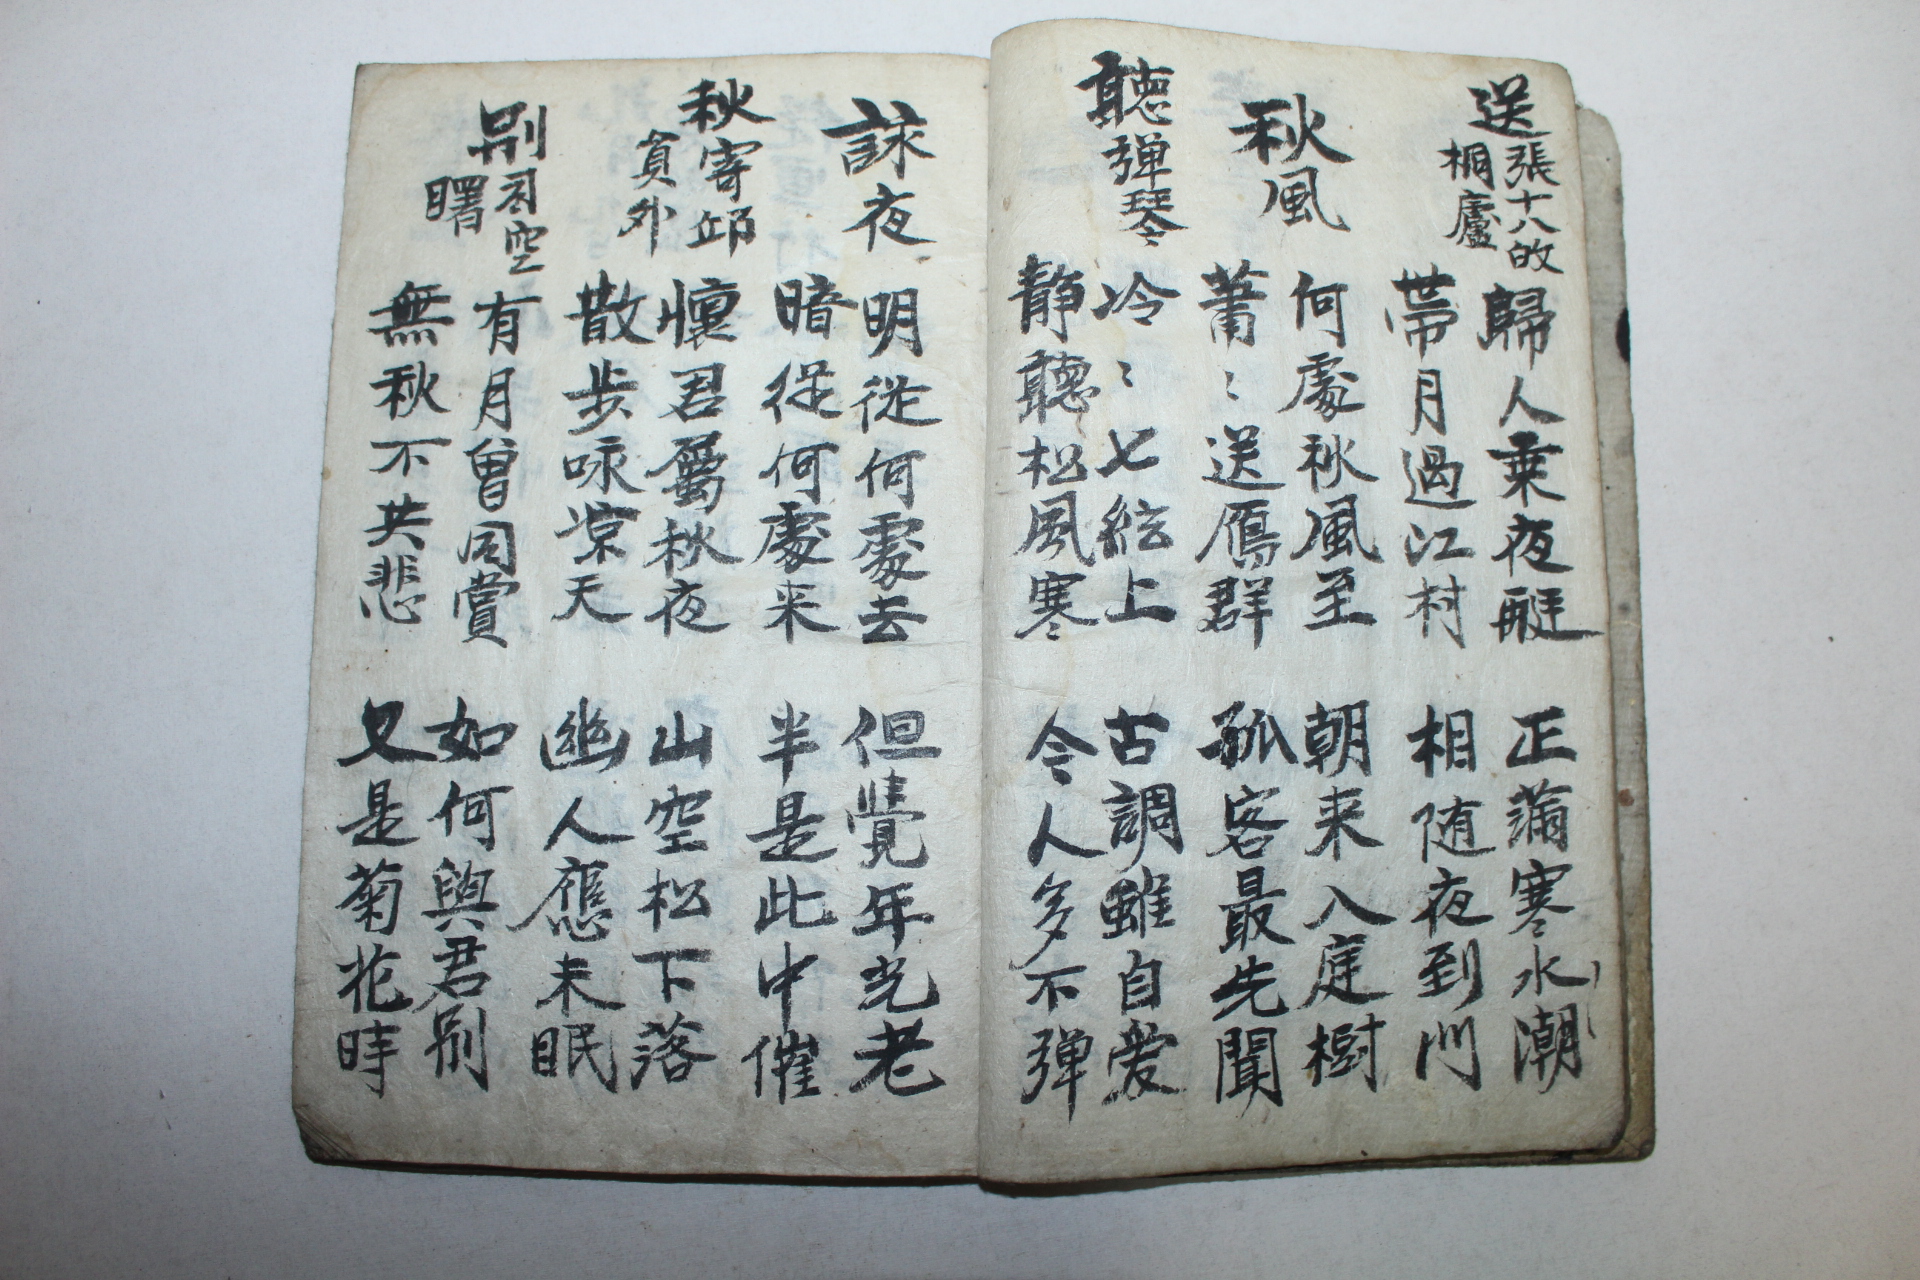 送張十八
桐廬
歸人乗夜艇　正滿寒水潮
帶月過江村　相随夜到門
秋風
何處秋風至　朝来入庭樹
蕭〻送鴈群　孤客最先聞
聽弹琴
冷〻七絃上　古調雖自爱
静聽松風寒　今人多不弹
詠夜
明從何處去　但覺年光老
暗從何處来　半是此中催
秋寄邱
員外
懷君屬秋夜　山空松下落
散步咏凉天　幽人應未眠
别司空
曙
有月曾同賞　如何與君别
無秋不共悲　又是菊花時